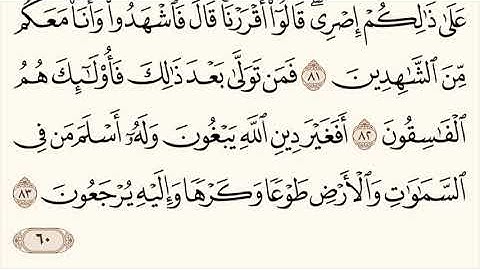 عَلَىٰ ذَٰلِكُمْ إِصْرِي ۖ قَالُوٓا۟ أَقْرَرْنَا ۚ قَالَ فَٱشْهَدُوا۟ وَأَنَا۠ مَعَكُم
مِّنَ ٱلشَّٰهِدِينَ ٨١ فَمَن تَوَلَّىٰ بَعْدَ ذَٰلِكَ فَأُو۟لَٰٓئِكَ هُمُ
ٱلْفَٰسِقُونَ ٨٢ أَفَغَيْرَ دِينِ ٱللَّهِ يَبْغُونَ وَلَهُۥٓ أَسْلَمَ مَن فِى
ٱلسَّمَٰوَٰتِ وَٱلْأَرْضِ طَوْعًا وَكَرْهًا وَإِلَيْهِ يُرْجَعُونَ ٨٣
٦٠